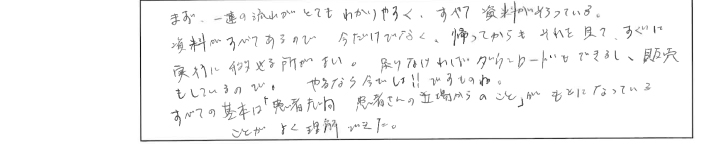 まず、一連の流れがとてもわかりやすく、すべて資料がそろっている。
資料がすべてあるので 今だけでなく、帰ってからも それを見て、すぐに
実行に移せる所がよい。 足りなければダウンロードもできるし、販売
もしているので。 やるなら今でしょ!! ですものね。
すべての基本は「患者志向 患者さんの立場からのこと」が もとになっている
ことが よく理解できた。